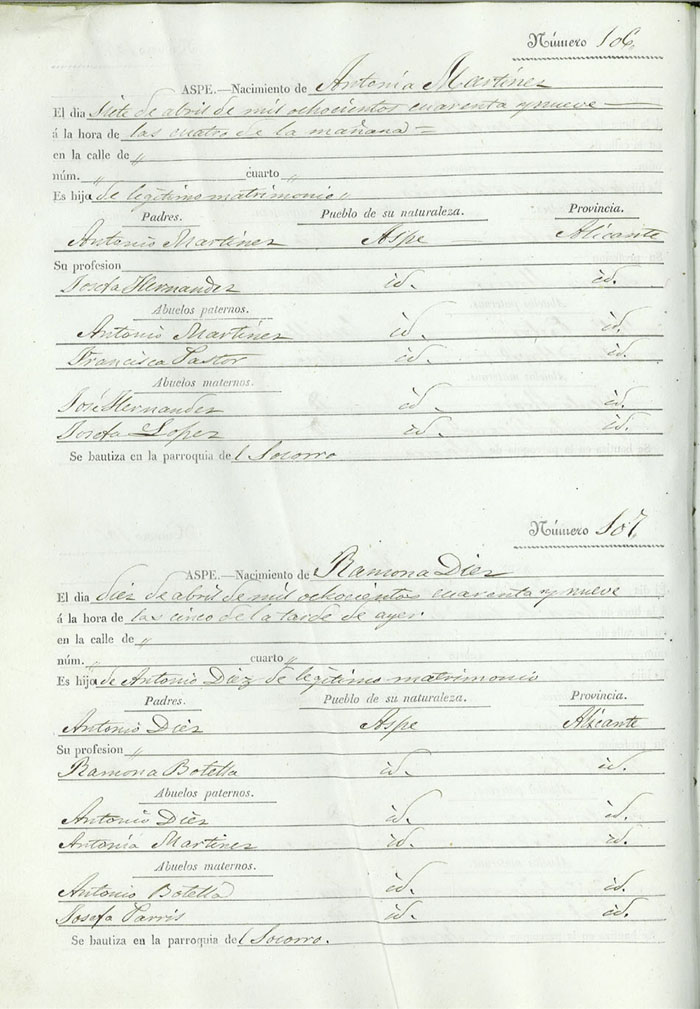 Número 106.
ASPE.—Nacimiento de Antonia Martinez
El dia Siete de abril de mil ochocientos cuarenta y nueve —
á la hora de las cuatro de la mañana =
en la calle de „
núm. „ cuarto „
Es hija de legitimo matrimonio „
Padres. Pueblo de su naturaleza. Provincia.
Antonio Martinez Aspe — Alicante
Su profesion
Josefa Hernandez id. id.
Abuelos paternos.
Antonio Martinez id. id.
Francisca Pastor id. id.
Abuelos maternos.
José Hernandez id. id.
Josefa Lopez id. id.
Se bautiza en la parroquia del Socorro
Número 107.
ASPE.—Nacimiento de Ramona Diez
El dia diez de abril de mil ochocientos cuarenta y nueve
á la hora de las cinco de la tarde de ayer.
en la calle de „
núm. „ cuarto „
Es hija de Antonio Diez de legitimo matrimonio
Padres. Pueblo de su naturaleza. Provincia.
Antonio Diez Aspe Alicante
Su profesion „
Ramona Botella id. id.
Abuelos paternos.
Antonio Diez id. id.
Antonia Martinez id. id.
Abuelos maternos.
Antonio Botella id. id.
Josefa id. id.
Se bautiza en la parroquia del Socorro.